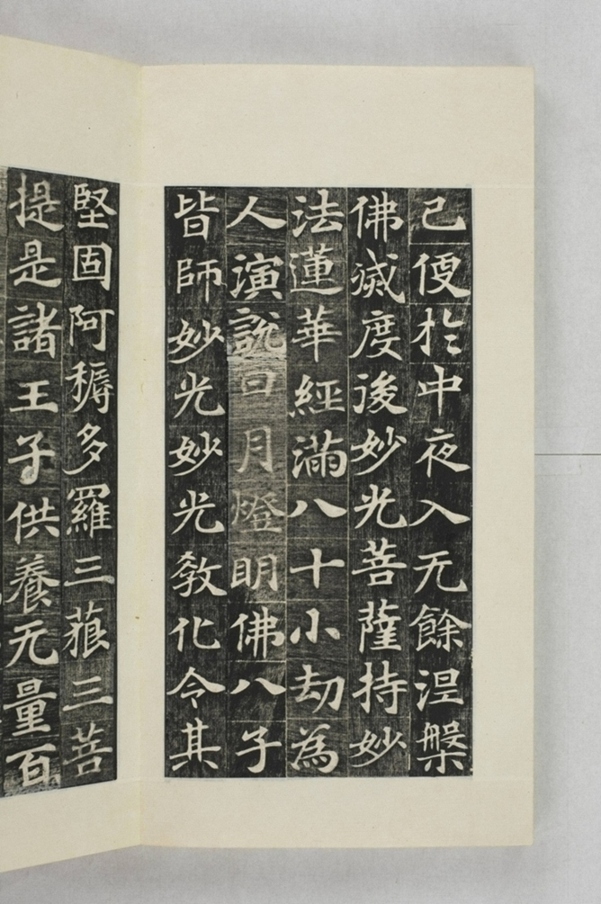 已便於中夜入无餘涅槃
佛滅度後妙光菩薩持妙
法蓮華經滿八十小劫為
人演說日月燈明佛八子
皆師妙光妙光教化令其
堅固阿耨多羅三藐三菩
提是諸王子供養无量百